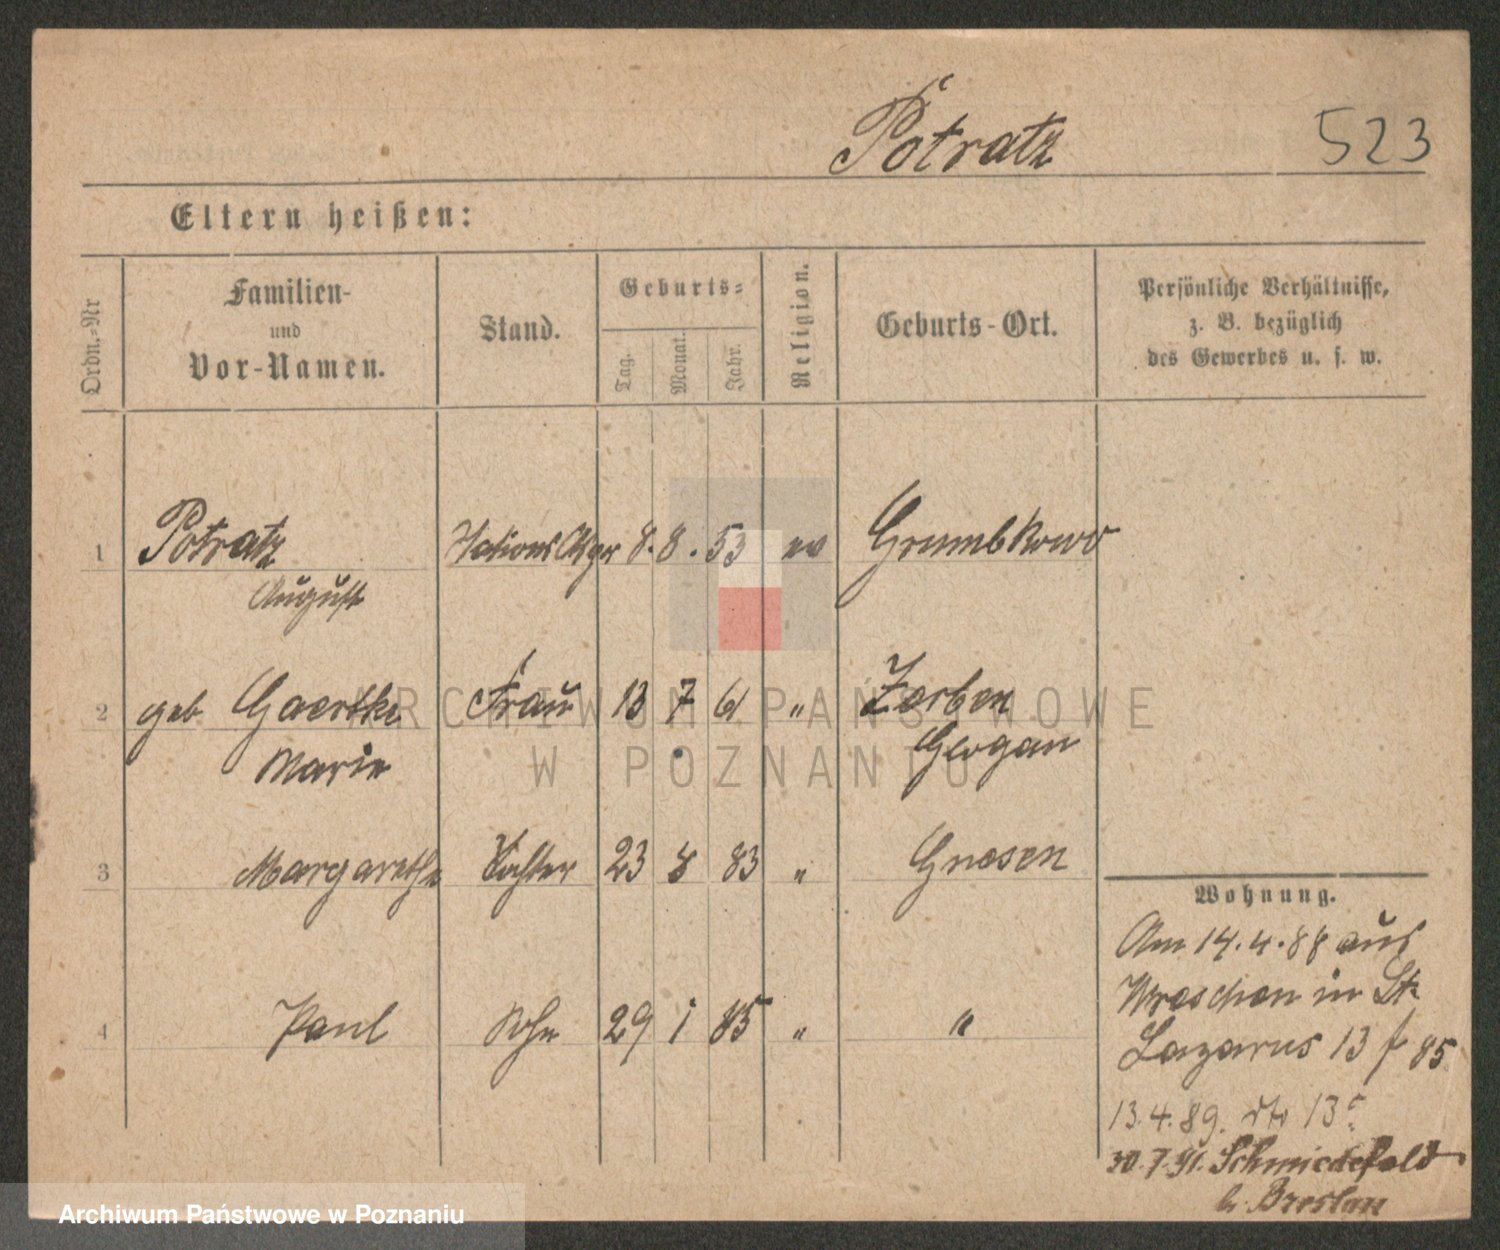 Potratz 523
Eltern heißen:
Ordn.-Nr
Familien-
und
Vor-Namen.
Stand.
Geburts-
Tag. Monat. Jahr.
Religion.
Geburts-Ort.
Persönliche Verhältnisse,
z. B. bezüglich
des Gewerbes u. s. w.
1 Potratz 8. 8. 53 ev Grumbkowo
August
2 geb Gaertke Frau 13 7 61 " Zerben
Marie Glogau
3 Margarethe Tochter 23 8 83 " Gnesen
4 Paul Sohn 29 1 85 " "
Wohnung.
Am 14.4.88 aus
Wreschen in St.
Lazarus 13 f 85
13.4.89. 13
30.7.91. Schmiedefeld
b. Breslau
ARCHIWUM PAŃSTWOWE
W POZNANIU
Archiwum Państwowe w Poznaniu